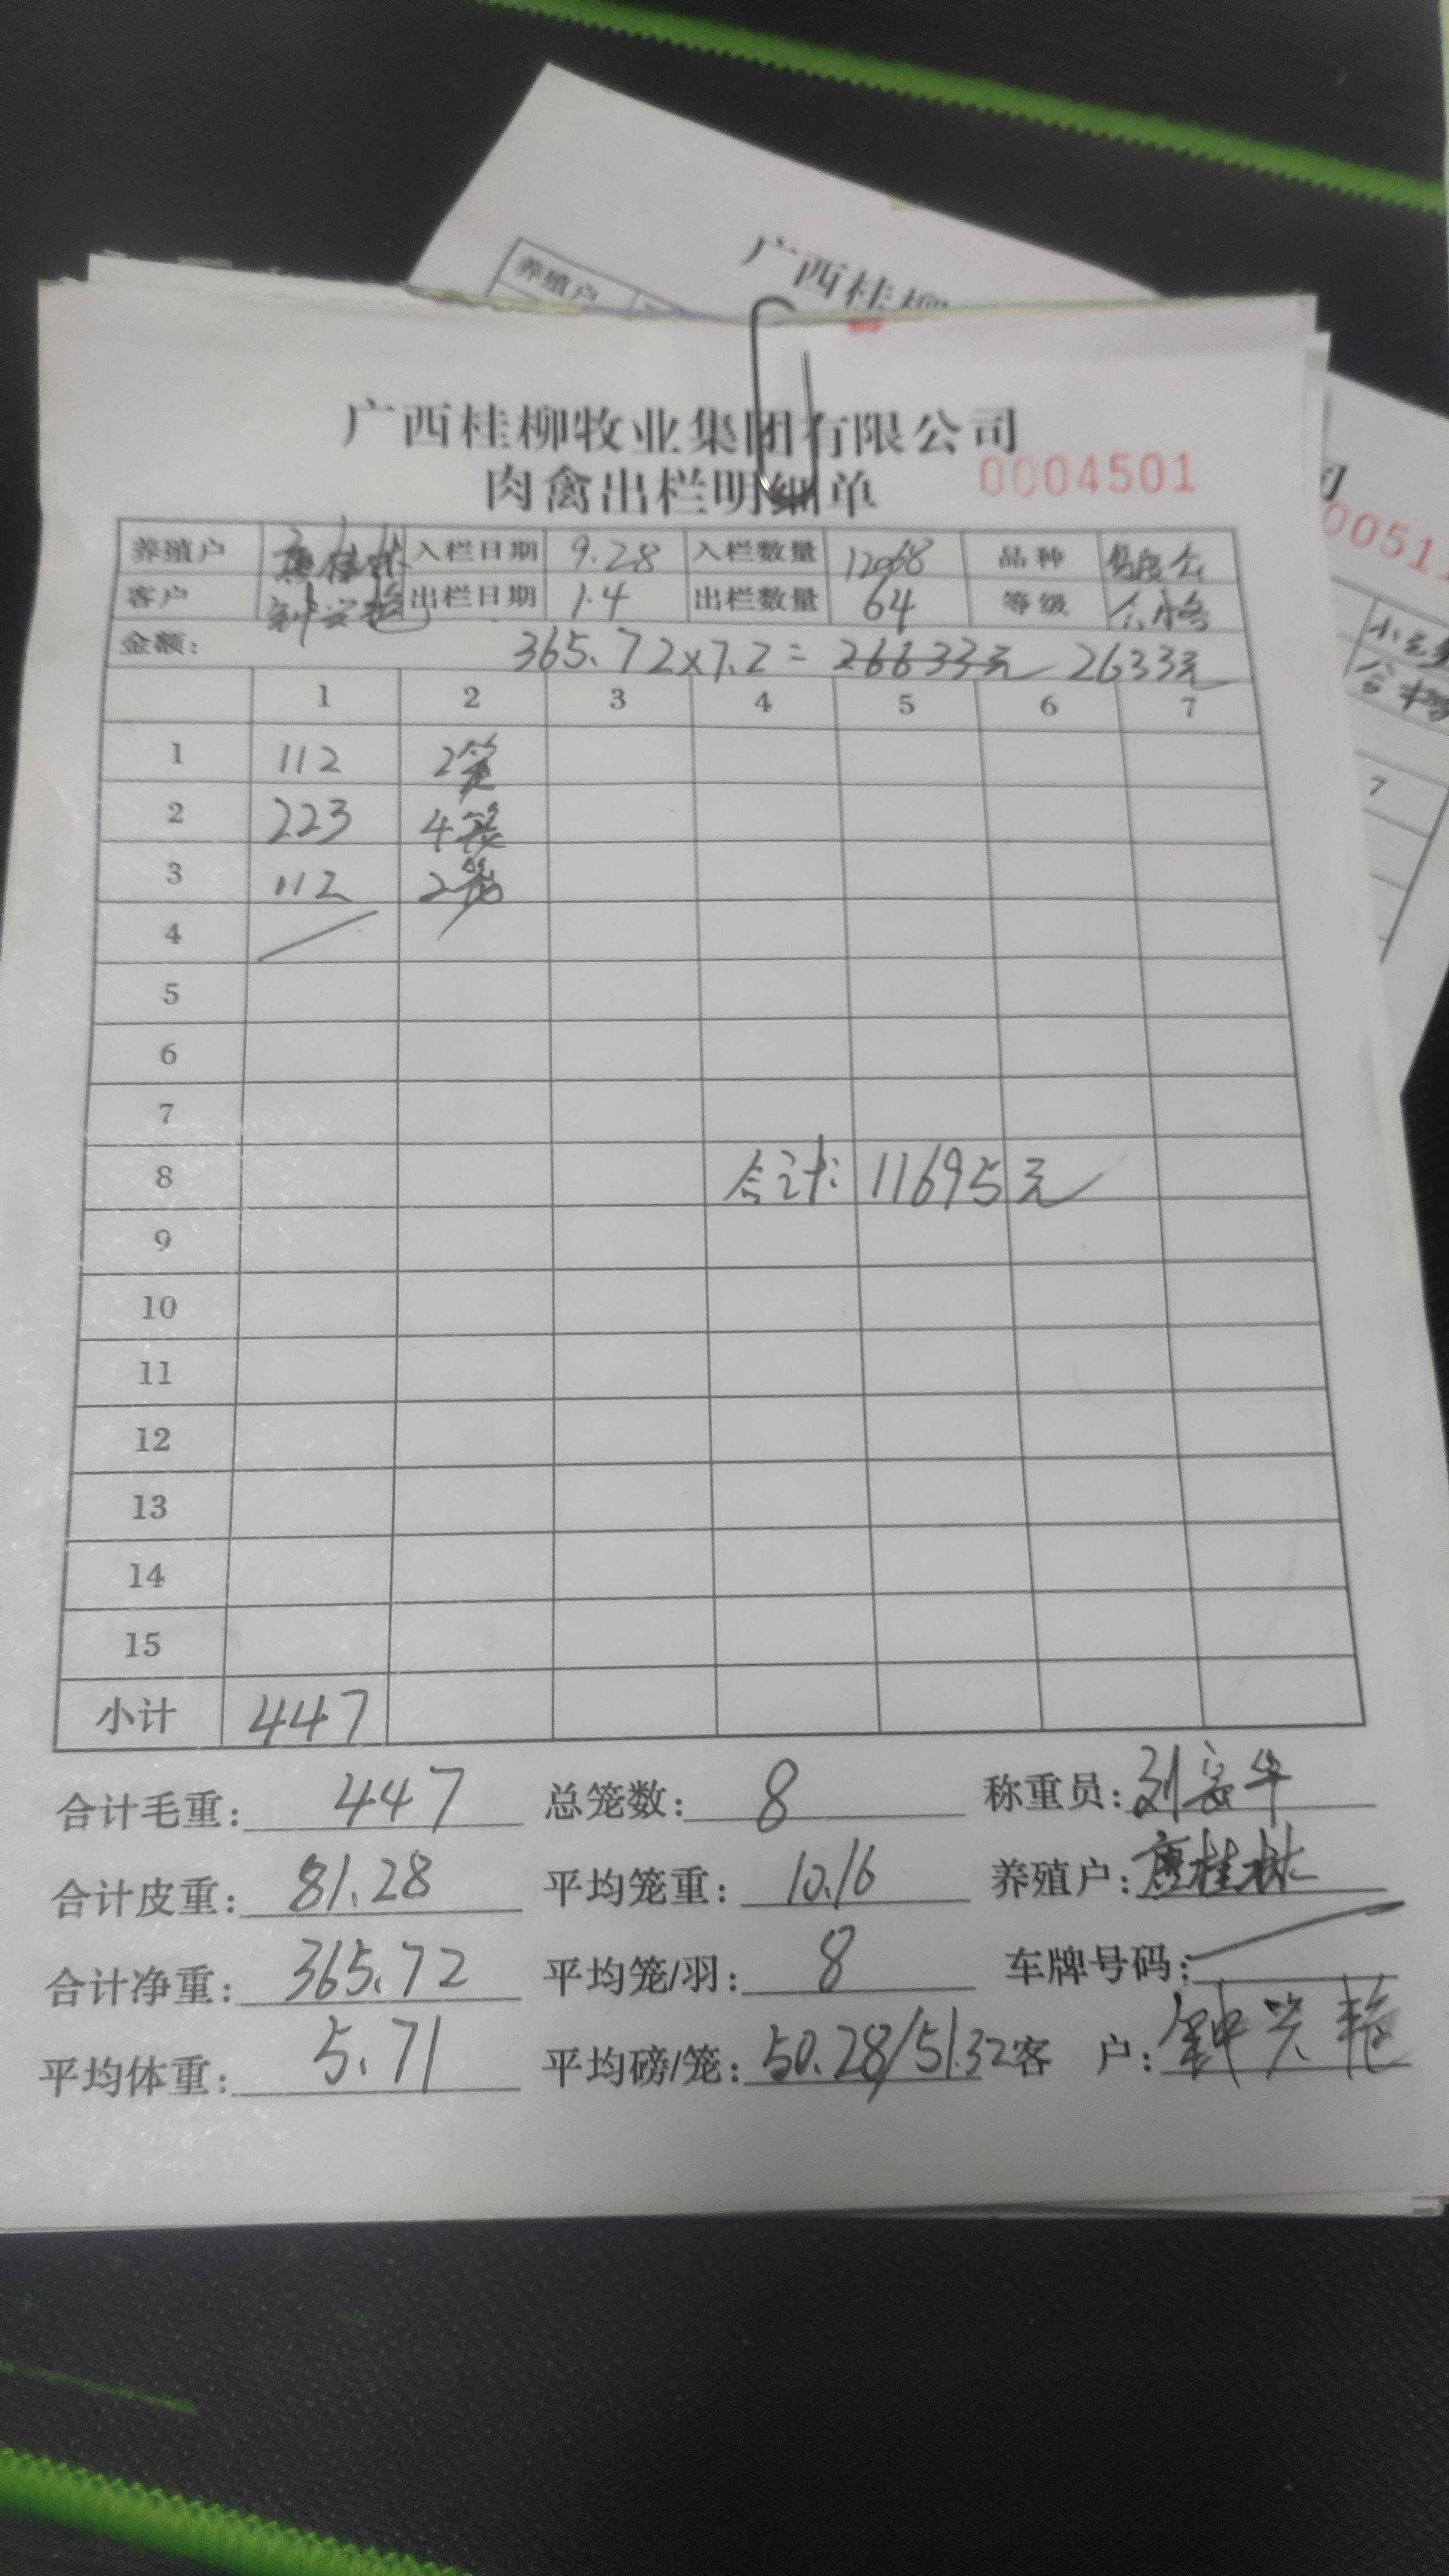 养殖户
广西桂柳
广西桂柳牧业集团有限公司
肉禽出栏明细单 0004501
养殖户 入栏日期 9.28 入栏数量 12068 品种
客户 钟兴艳 出栏日期 1.4 出栏数量 64 等级 合格
金额： 365.72×7.2= 26633元 2633元
1 2 3 4 5 6 7
1 112 2笼
2 223 4笼
3 112 2笼
4
5
6
7
8 合计: 11695元
9
10
11
12
13
14
15
小计 447
合计毛重： 447 总笼数： 8 称重员：
合计皮重： 81.28 平均笼重： 10.16 养殖户：
合计净重： 365.72 平均笼/羽： 8 车牌号码：
平均体重： 5.71 平均磅/笼： 50.28/51.32 客 户： 钟兴艳
0051
合格
7